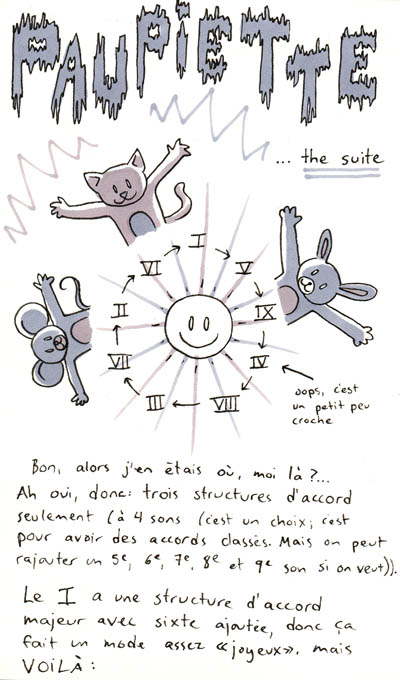 PAUPIETTE
... the suite
I
V
IX
IV
VIII
III
VII
II
VI
oops, c'est
un petit peu
croche
Bon, alors j'en étais où, moi là?...
Ah oui, donc: trois structures d'accord
seulement (à 4 sons (c'est un choix; c'est
pour avoir des accords classés. Mais on peut
rajouter un 5e, 6e, 7e, 8e et 9e son si on veut)).
Le I a une structure d'accord
majeur avec sixte ajoutée, donc ça
fait un mode assez «joyeux», mais
VOILÀ: